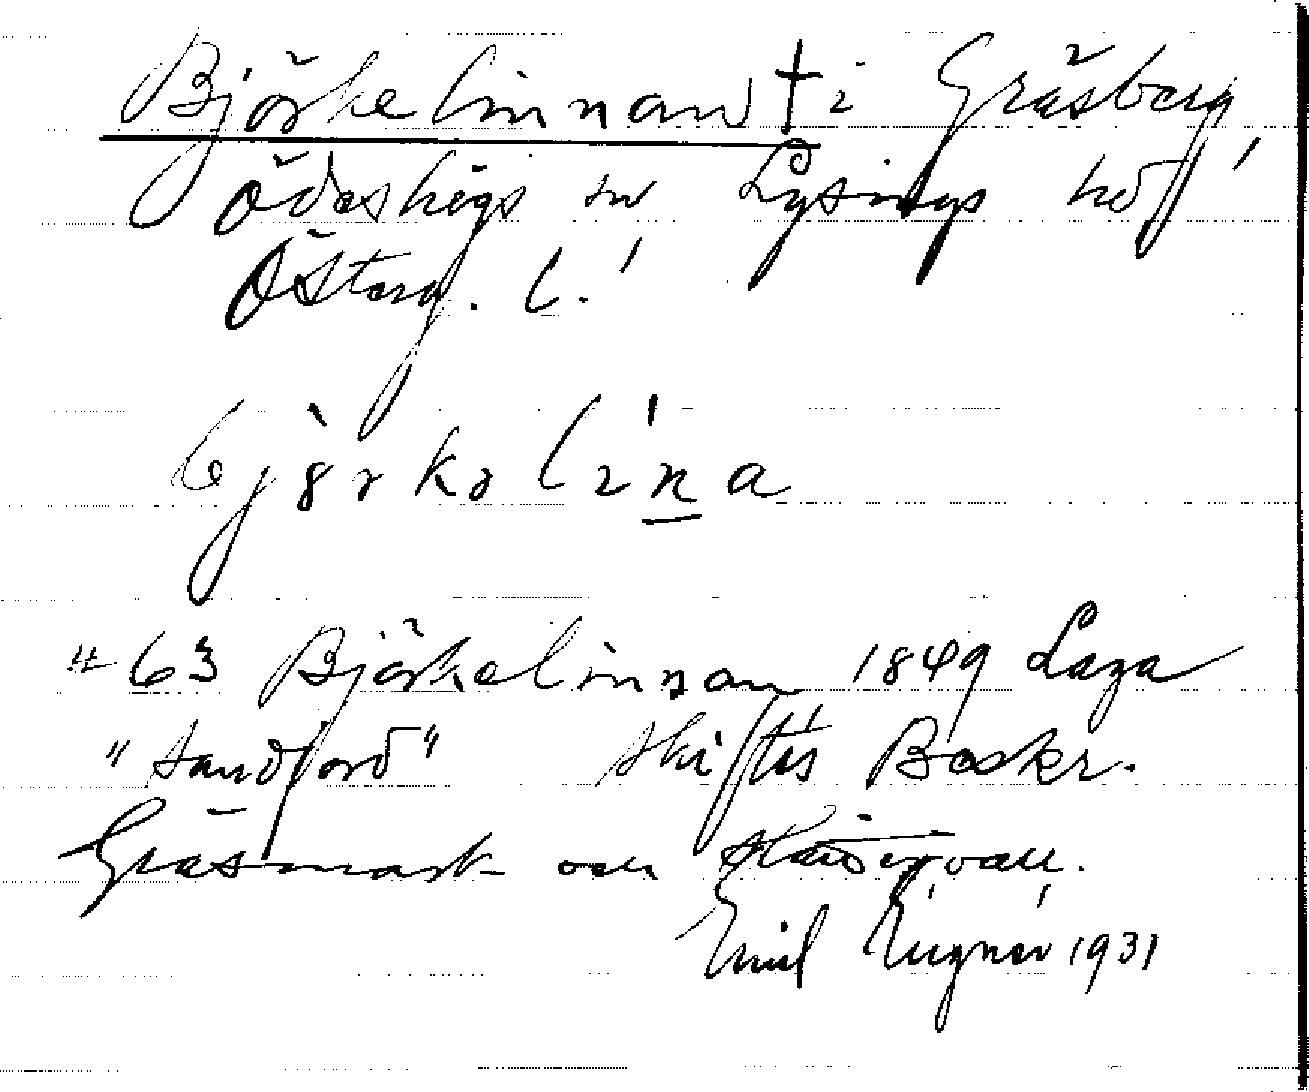 Björkelinnan † i Gråsberg,
Ödeshögs sn Lysings hd,
Österg. l.
bjòrkəlına
#63 Björkelinnan 1849 Laga
"Sandjord" skiftes Beskr.
Gräsmark och
Emil 1931